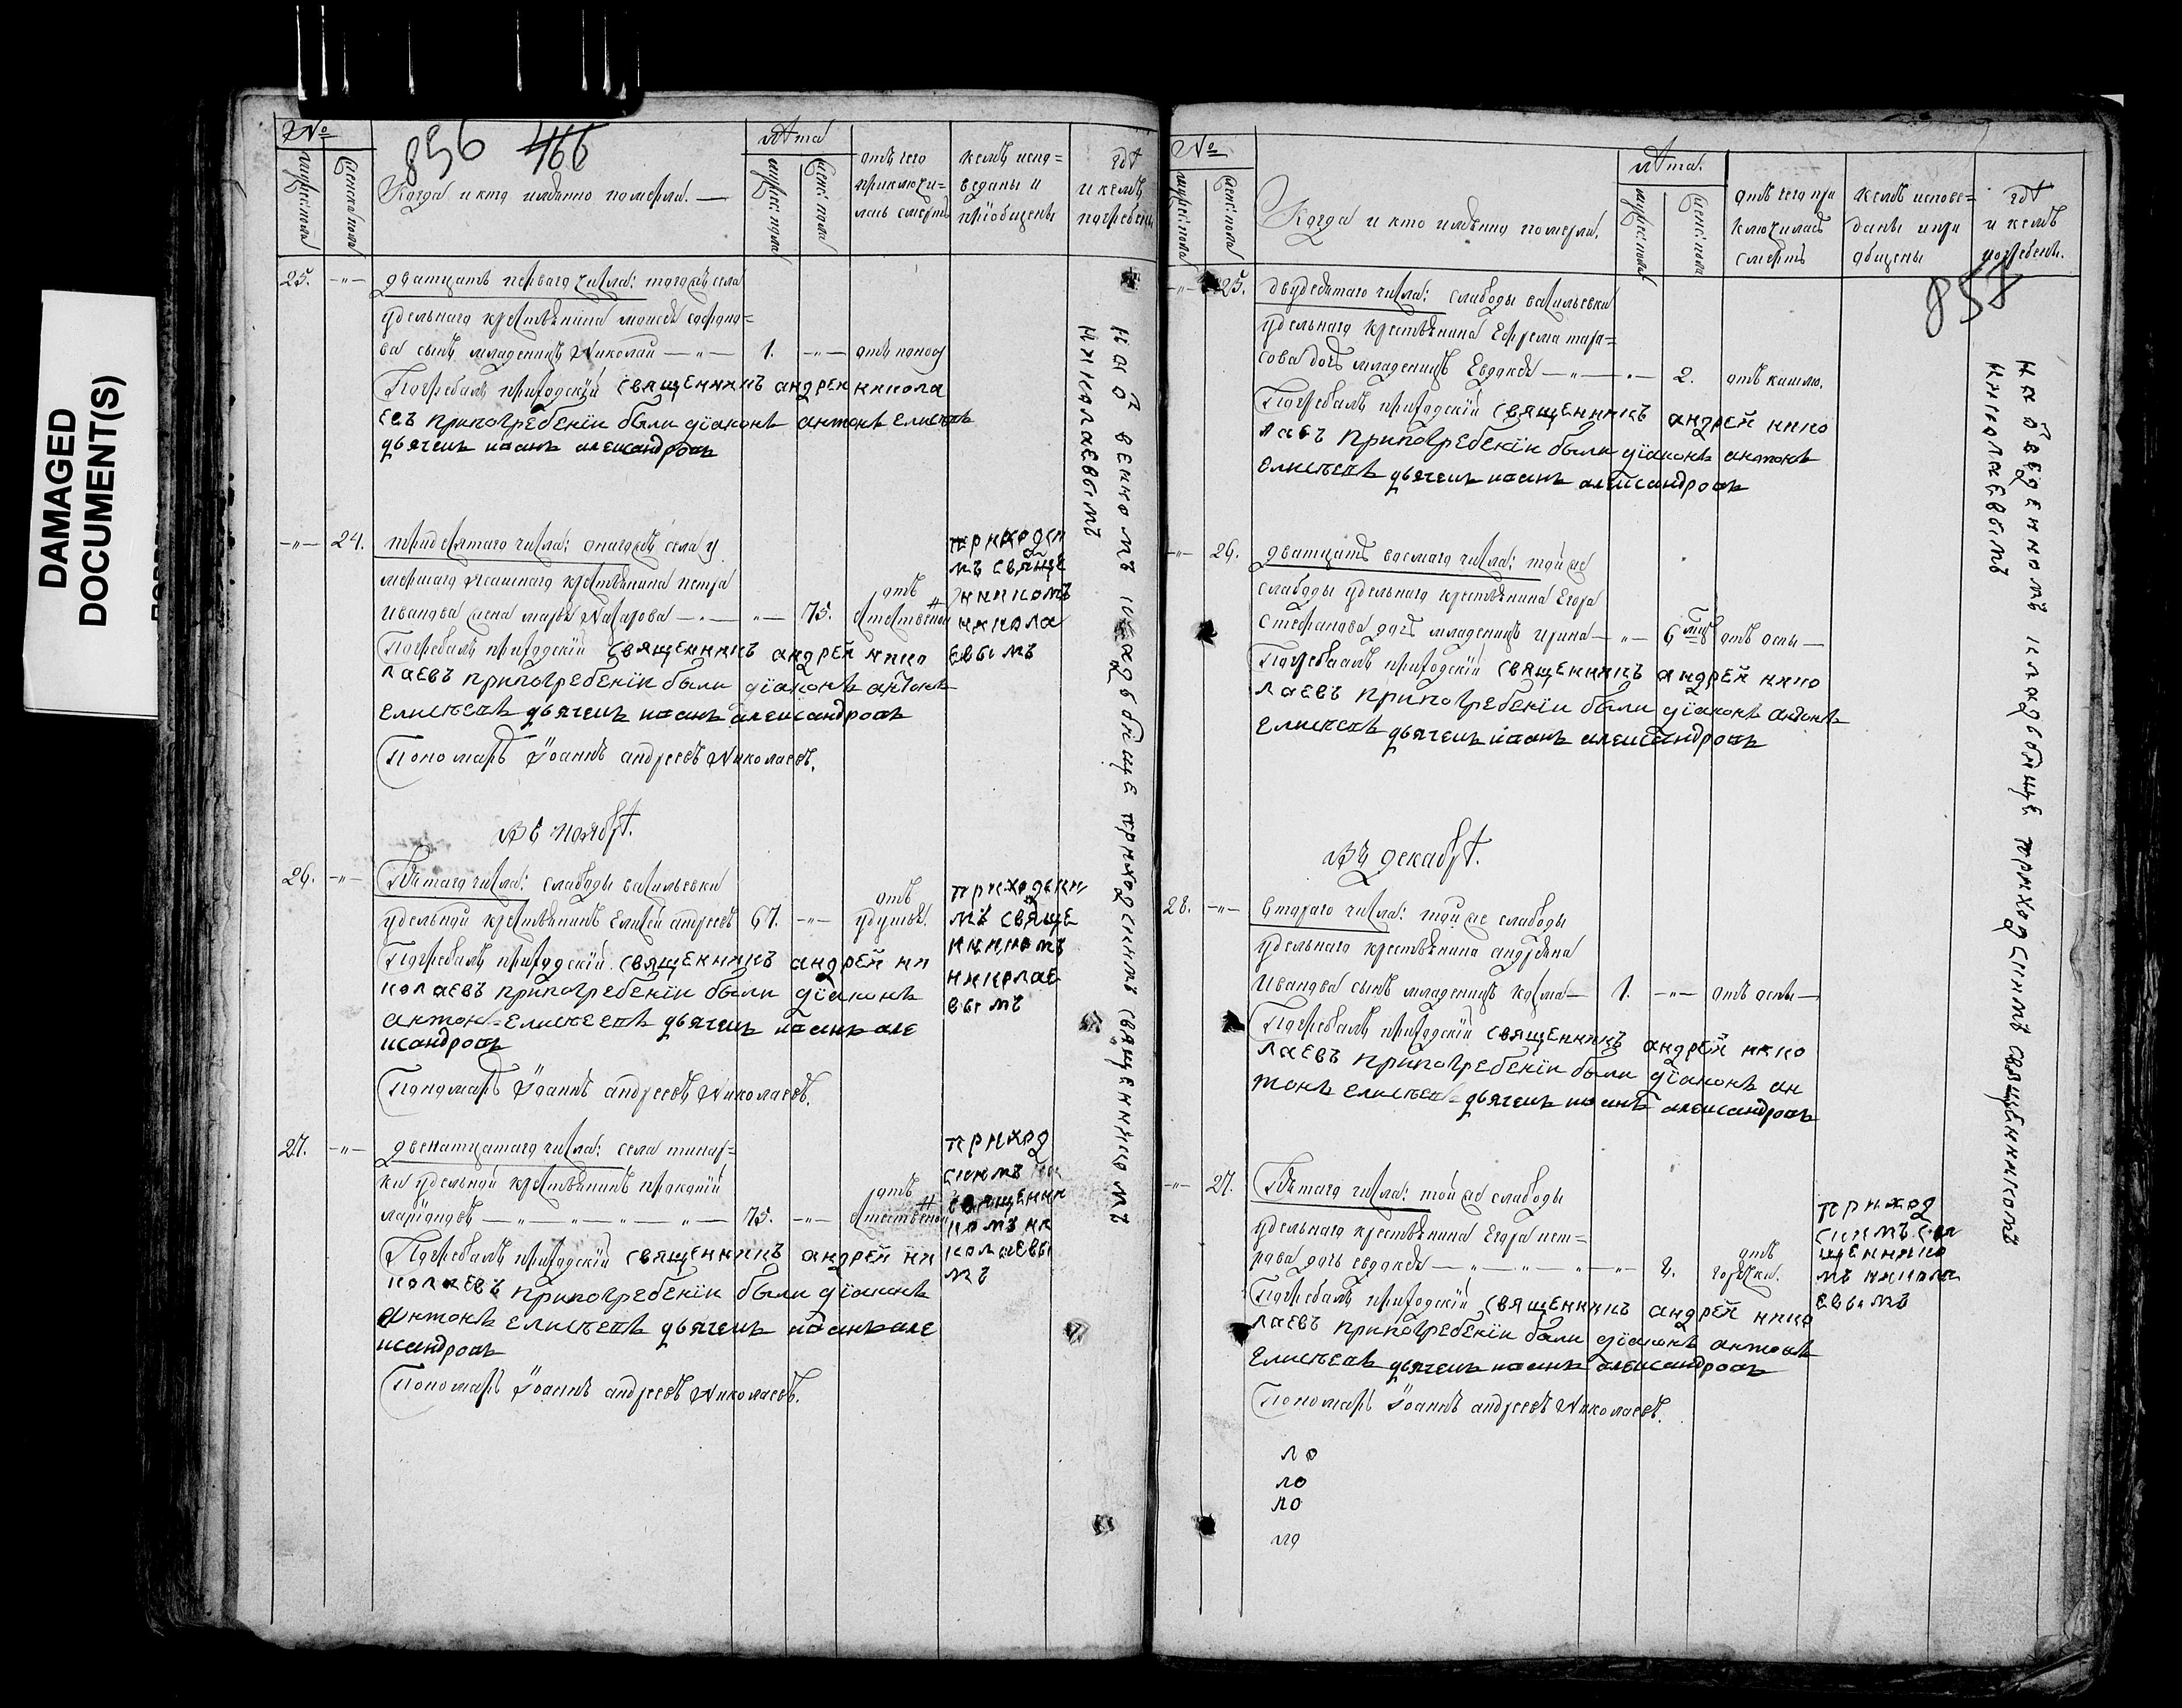 DAMAGED
DOCUMENT(S)
№
856 466
Когда и кто имянно померли.
лѣта
мужес: пола
женс: пола
отъ чего
приключи=
лась смерть
кемъ испо=
веданы и
пріобщены
гдѣ
и кемъ
погребены
25. —„— дватцать перваго числа: тогоже села
удельнаго крестьянина моисея софоно=
ва сынъ младенецъ Николай —„— 1. —„— отъ поносу
Погребалъ приходскій священникъ андреи никола
евъ припогребеніи были діаконъ антонъ елисеевъ
дьячекъ иоанъ александровъ
—„— 24. тридесятаго числа: оногожъ села у
мершаго ясашнаго крестьянина петра
иванова жена марья Назарова —„— „— 75. отъ естественной
приходск
мъ свяще
нникомъ
никола
евымъ
Погребалъ приходскій священникъ андрей нико
лаевъ припогребеніи были діаконъ антонъ
елисеевъ дьячекъ иоанъ александровъ
Пономарь Іоаннъ андреевъ Николаевъ.
Въ ноябрѣ.
26. —„— Пятаго числа: слабоды васильевки
удельной крестьянинъ Елисей андреевъ 67. —„— отъ удушья.
приходски
мъ свяще
нникомъ
николае
вымъ
Погребалъ приходскій священникъ андрей ни
колаевъ припогребеніи были діаконъ
антонъ елисеевъ дьячекъ иоанъ але
ксандровъ
Пономарь Іоаннъ андреевъ Николаевъ.
27. —„— двенатцатаго числа: села
ки удельной крестьянинъ прокопій
ларіоновъ —„—„—„—„— 75. —„— отъ естественной
приход
скимъ
священни
комъ ни
колаевы
мъ
Погребалъ приходскій священникъ андрей ни
колаевъ припогребеніи были діаконъ
антонъ елисеевъ дьячекъ иоанъ але
ксандровъ
Пономарь Іоаннъ андреевъ Николаевъ.
кладбище приходскимъ священникомъ
николаевымъ
№
857
мужес: пола
женс: пола
Когда и кто имянно померли.
лѣта.
мужес: пола
женс: пола
отъ чего при
ключилась
смерть
кемъ испове=
даны и прі
общены
гдѣ
и кемъ
погребены.
—„— 25. двудесятаго числа: слабоды васильевки
удельнаго крестьянина Ефрема тара=
сова дочь младенецъ Евдокея —„— „— 2. отъ кашлю.
Погребалъ приходскій священникъ андрей нико
лаевъ припогребеніи были діаконъ антонъ
елисеевъ дьячекъ иоанъ александровъ
—„— 26. дватцать восмаго числа: той же
слабоды удельнаго крестьянина Егора
Стефанова дочь младенецъ ирина —„— 6 отъ оспы —
Погребалъ приходскій священникъ андрей нико
лаевъ припогребеніи были діаконъ антонъ
елисеевъ дьячекъ иоанъ александровъ
Въ декабрѣ.
28. —„— втораго числа: той же слабоды
удельнаго крестьянина андреяна
иванова сынъ младенецъ козма — 1. —„— отъ оспы —
Погребалъ приходскій священникъ андрей нико
лаевъ припогребеніи были діаконъ ан
тонъ елисеевъ дьячекъ иоанъ александровъ
—„— 27. Пятаго числа: той же слабоды
удельнаго крестьянина Егора пет=
рова дочь евдокея —„—„—„—„— 8. отъ горячки.
приход
скимъ свя
щеннико
мъ никола
евымъ
Погребалъ приходскій священникъ андрей нико
лаевъ припогребеніи были діаконъ антонъ
елисеевъ дьячекъ иоанъ александровъ
Пономарь Іоаннъ андреевъ Николаевъ.
ло
ло
ло
ло
на отведенномъ кладбище приходскимъ священникомъ
николаевымъ